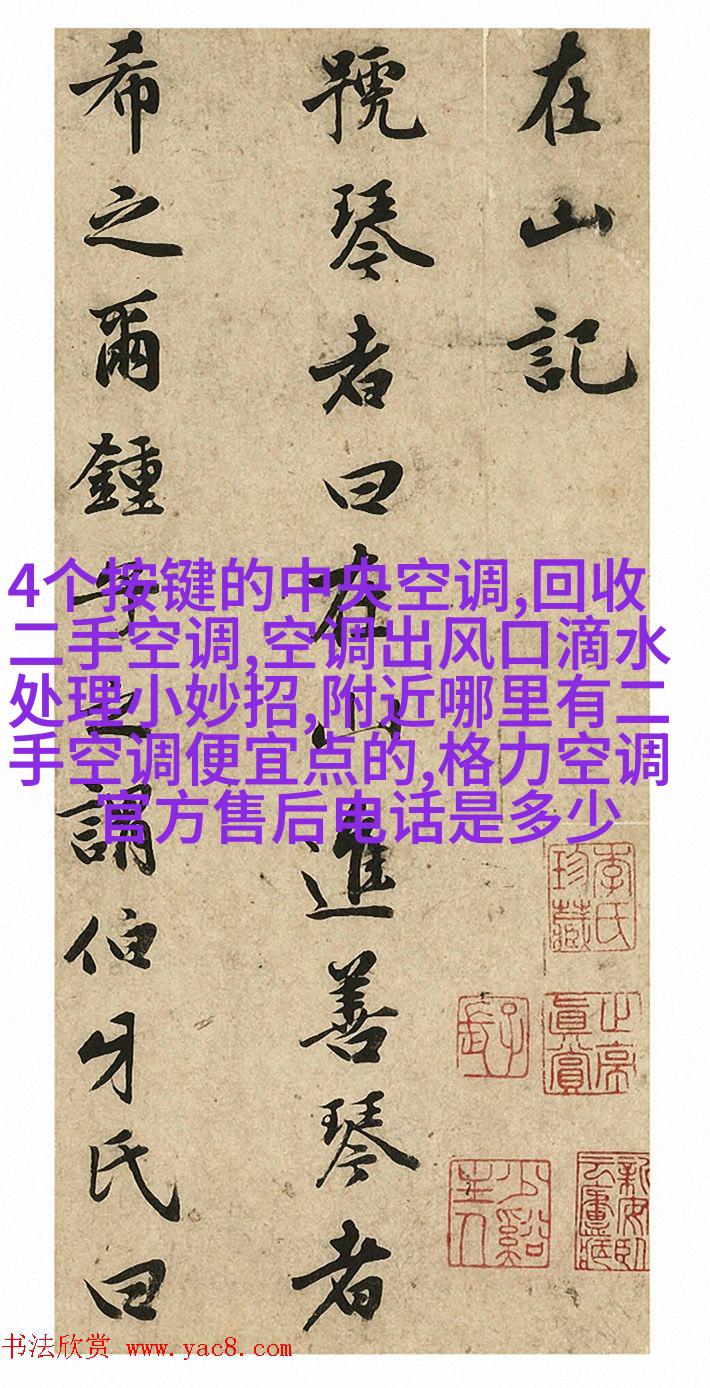 在山記
號琴者曰在山進善琴者
希之爾鍾子之謂伯牙氏曰
4个按键的中央空调,回收
二手空调,空调出风口滴水
处理小妙招,附近哪里有二
手空调便宜点的,格力空调
官方售后电话是多少
李氏珍藏
少谿主人
书法欣赏 www.yac8.com